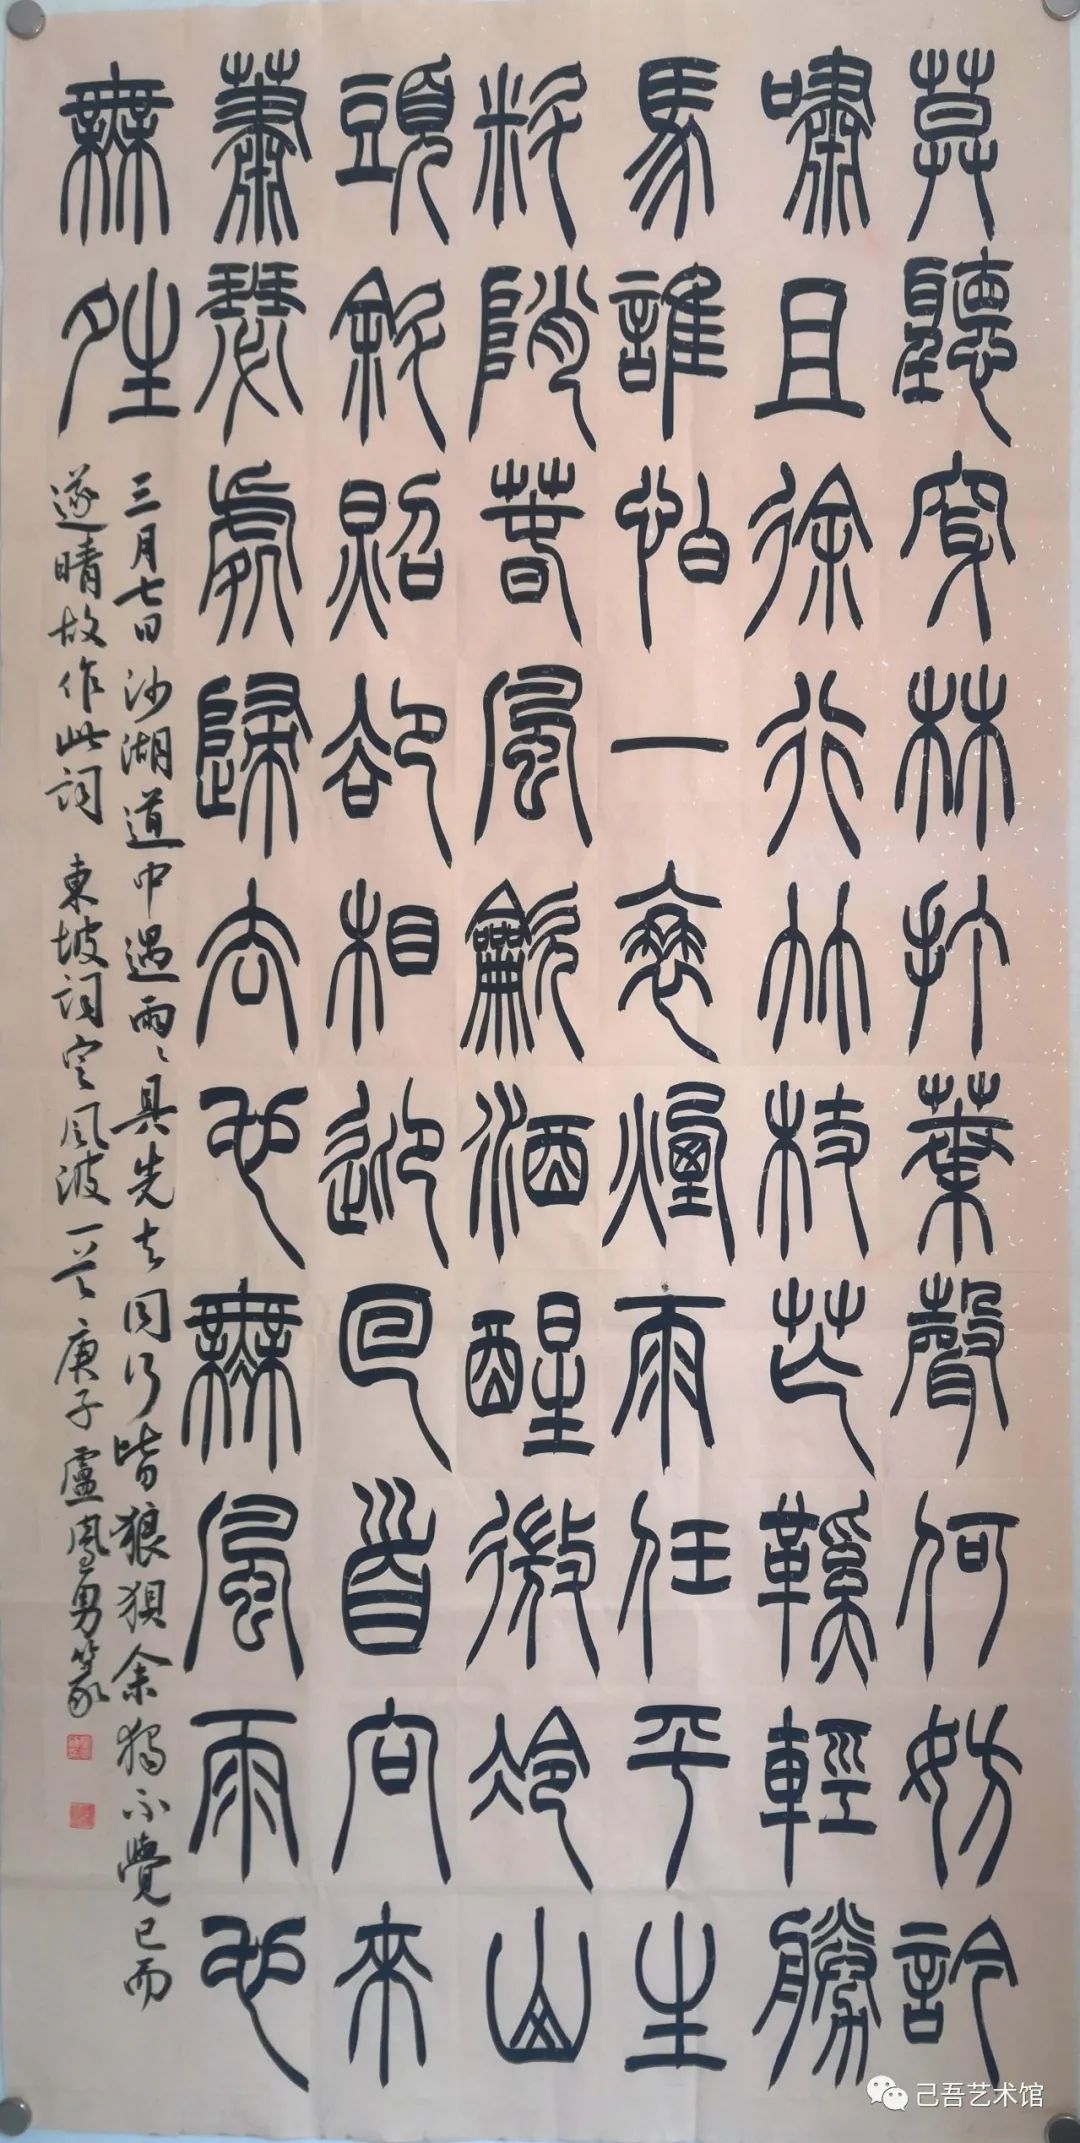 莫聽穿林打葉聲何妨訡
嘯且徐行竹杖芒鞵輕勝
馬誰怕一衰煙雨任平生
料陗春風吹酒醒微冷山
頭斜照卻相迎回首向來
蕭瑟處歸去也無風雨也
無晴
三月七日沙湖道中遇雨〻具先去同行皆狼狽余獨不覺已而
遂晴故作此詞 東坡詞定風波一首 庚子盧鳳勇篆
己吾艺术馆